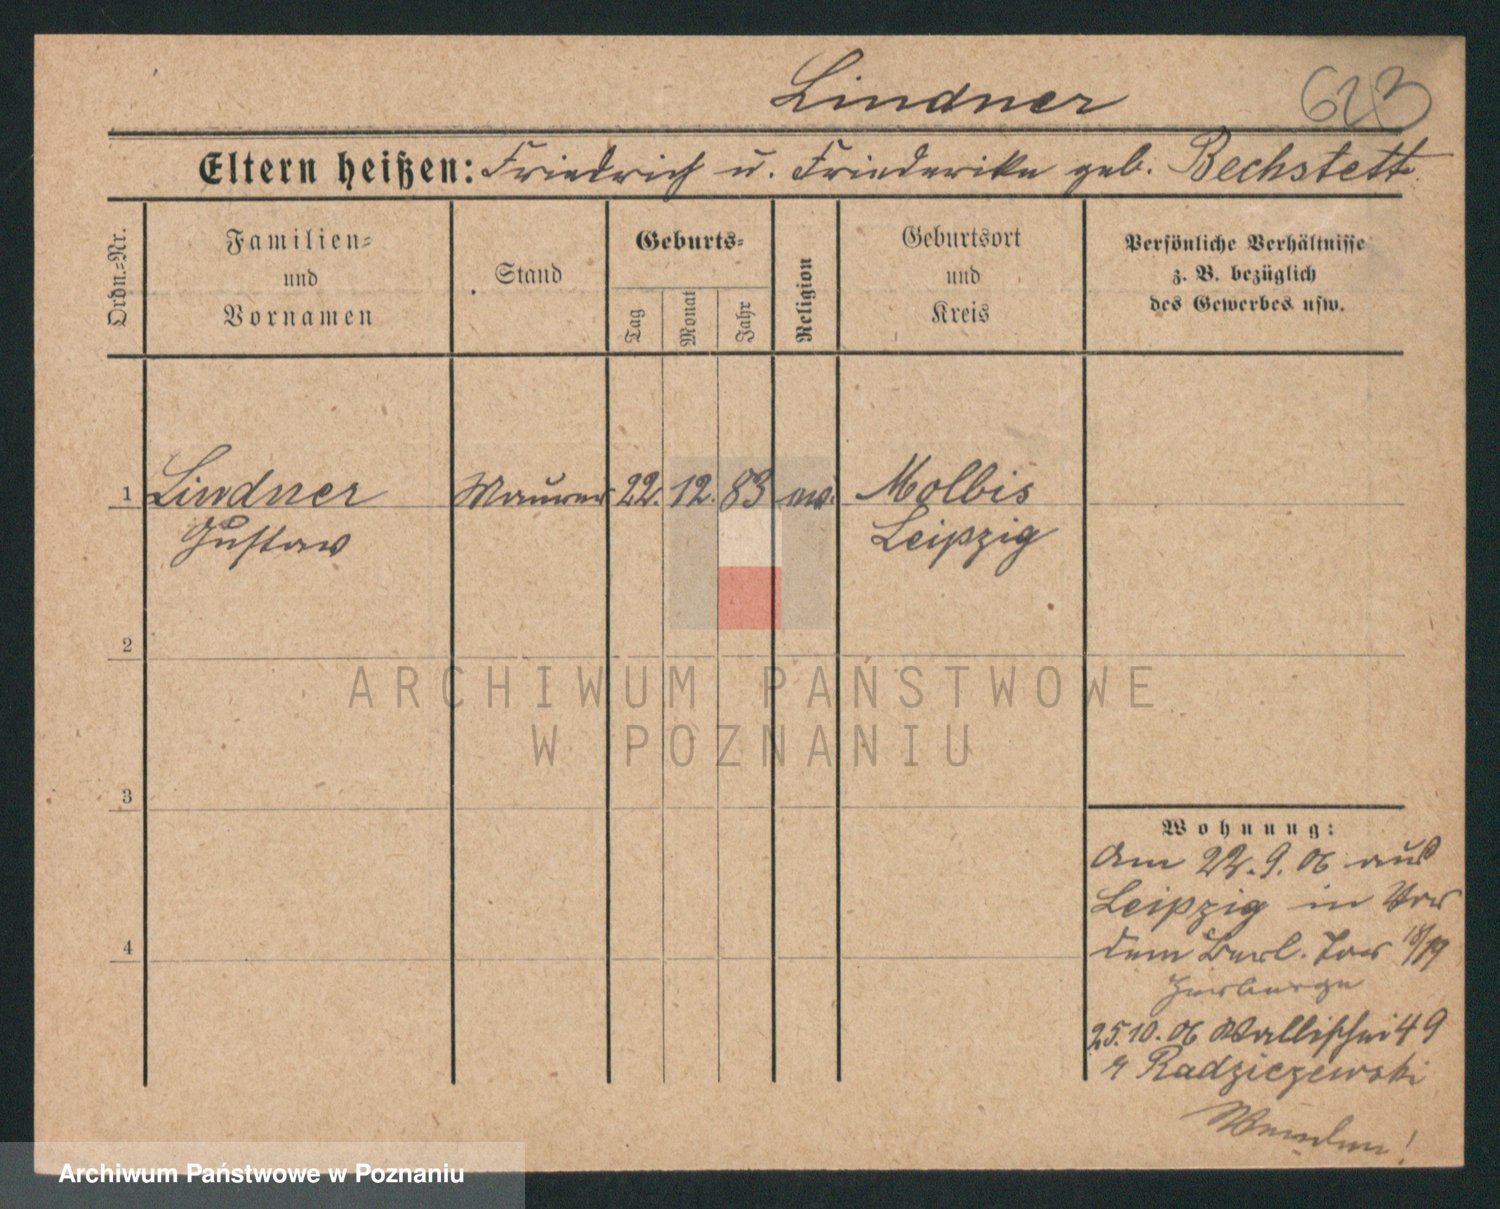 Lindner
623
Eltern heißen: Friedrich u. Friederike geb. Bechstett
Ordn.=Nr.
Familien=
und
Vornamen
Stand
Geburts=
Tag
Monat
Jahr
Religion
Geburtsort
und
Kreis
Persönliche Verhältnisse
z. B. bezüglich
des Gewerbes usw.
1
Lindner Maurer 22. 12. 83 ev. Molbis
Gustav Leipzig
2
ARCHIWUM PAŃSTWOWE
W POZNANIU
3
Wohnung:
Am 22.9.06 aus
Leipzig in Vor
4
dem Berl. Tor 18/19
Herberge
25.10.06 Wallischei 49
Radziejewski
Wenden!
Archiwum Państwowe w Poznaniu